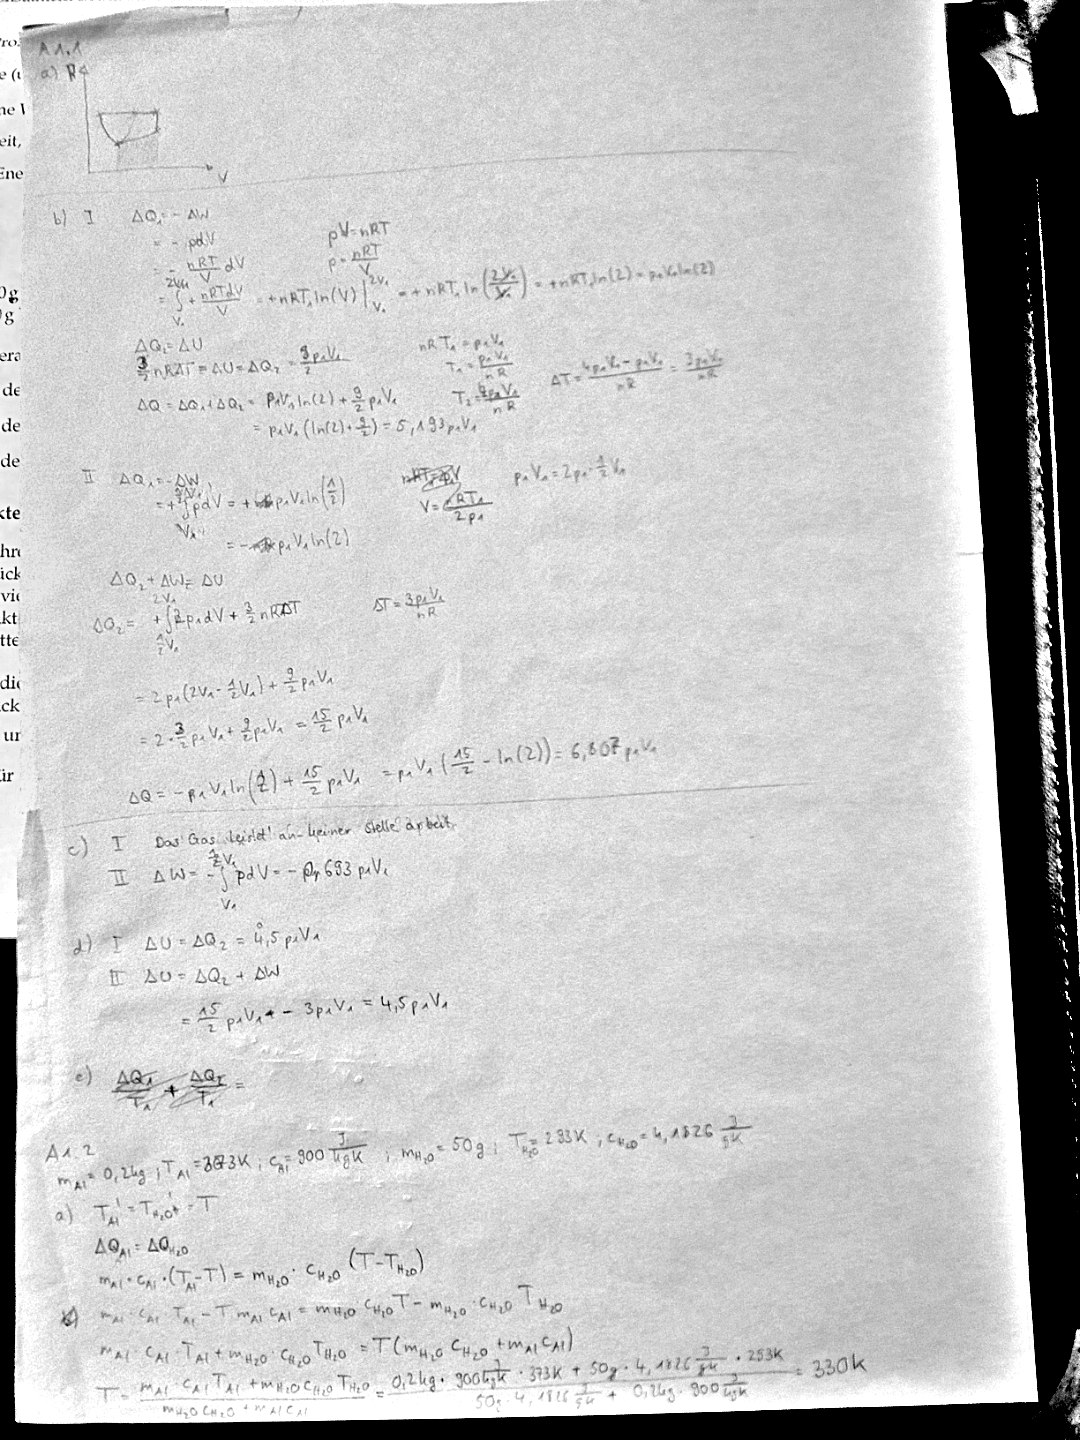 A 1.1
a) P
V
b) I ΔQ₁ = - ΔW
= - pdV
pV = nRT
= - nRT/V dV
p = nRT/V
= ∫ + nRTdV/V = + nRT₁ ln(V) | = + nRT₁ ln(2V₁/V₁) = + nRT₁ ln(2) = p₁V₁ ln(2)
ΔQ₂ = ΔU
nRT₁ = p₁V₁
3/2 nRΔT = ΔU = ΔQ₂ = 9/2 p₁V₁
T₁ = p₁V₁/nR
ΔT = 4p₁V₁ - p₁V₁/nR = 3p₁V₁/nR
ΔQ = ΔQ₁ + ΔQ₂ = p₁V₁ ln(2) + 9/2 p₁V₁
T₂ = 4p₁V₁/nR
= p₁V₁ (ln(2) + 9/2) = 5,193 p₁V₁
II ΔQ₁ = - ΔW
p₁V₁ = 2p₁ · 1/2 V₁
= + ∫ pdV = + p₁V₁ ln(1/2)
V = nRT₁/2p₁
= - p₁V₁ ln(2)
ΔQ₂ + ΔW = ΔU
ΔQ₂ = + ∫ 2p₁dV + 3/2 nRΔT
ΔT = 3p₁V₁/nR
= 2p₁(2V₁ - 1/2 V₁) + 9/2 p₁V₁
= 2 · 3/2 p₁V₁ + 9/2 p₁V₁ = 15/2 p₁V₁
ΔQ = - p₁V₁ ln(2) + 15/2 p₁V₁ = p₁V₁ (15/2 - ln(2)) = 6,807 p₁V₁
c) I Das Gas leistet an keiner stelle arbeit.
II ΔW = - ∫ pdV = - 0,693 p₁V₁
d) I ΔU = ΔQ₂ = 4,5 p₁V₁
II ΔU = ΔQ₂ + ΔW
= 15/2 p₁V₁ - 3p₁V₁ = 4,5 p₁V₁
e) ΔQ₁/T₁ + ΔQ₂/T₁ =
A 1.2
m_Al = 0,2kg ; T_Al = 373K ; c_Al = 900 J/kgK ; m_H₂O = 50g ; T_H₂O = 293K ; c_H₂O = 4,1826 J/gK
a) T_Al' = T_H₂O' = T
ΔQ_Al = ΔQ_H₂O
m_Al · c_Al · (T_Al - T) = m_H₂O · c_H₂O (T - T_H₂O)
m_Al · c_Al · T_Al - T m_Al c_Al = m_H₂O c_H₂O T - m_H₂O · c_H₂O T_H₂O
m_Al · c_Al · T_Al + m_H₂O · c_H₂O T_H₂O = T (m_H₂O c_H₂O + m_Al c_Al)
T = m_Al c_Al T_Al + m_H₂O c_H₂O T_H₂O / m_H₂O c_H₂O + m_Al c_Al = 0,2kg · 900 J/kgK · 373K + 50g · 4,1826 J/gK · 293K / 50g · 4,1826 J/gK + 0,2kg · 900 J/kgK = 330K